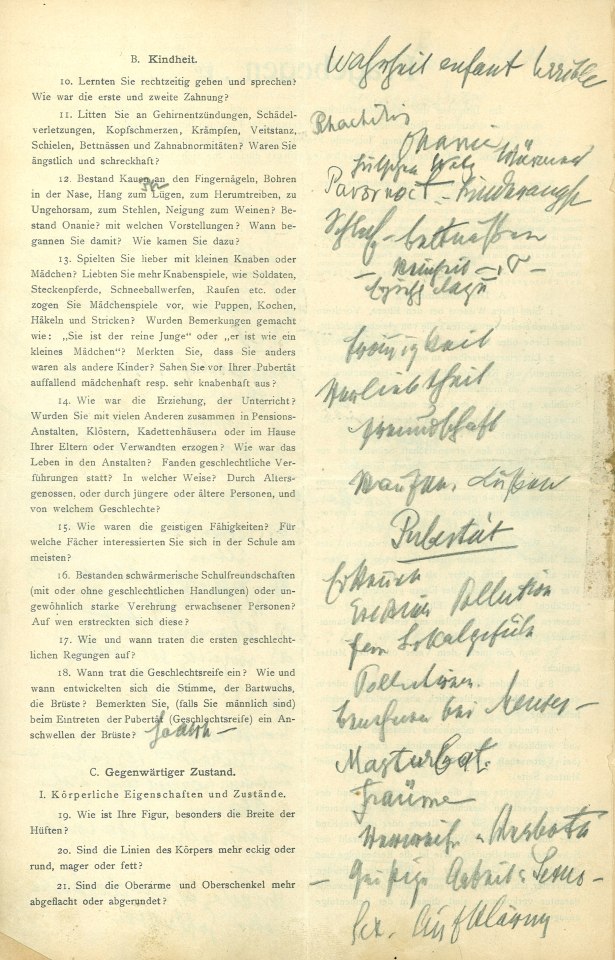 B. Kindheit.
10. Lernten Sie rechtzeitig gehen und sprechen?
Wie war die erste und zweite Zahnung?
11. Litten Sie an Gehirnentzündungen, Schädel-
verletzungen, Kopfschmerzen, Krämpfen, Veitstanz,
Schielen, Bettnässen und Zahnabnormitäten? Waren Sie
ängstlich und schreckhaft?
12. Bestand Kauen an den Fingernägeln, Bohren
in der Nase, Hang zum Lügen, zum Herumtreiben, zu
Ungehorsam, zum Stehlen, Neigung zum Weinen? Be-
stand Onanie? mit welchen Vorstellungen? Wann be-
gannen Sie damit? Wie kamen Sie dazu?
13. Spielten Sie lieber mit kleinen Knaben oder
Mädchen? Liebten Sie mehr Knabenspiele, wie Soldaten,
Steckenpferde, Schneeballwerfen, Raufen etc. oder
zogen Sie Mädchenspiele vor, wie Puppen, Kochen,
Häkeln und Stricken? Wurden Bemerkungen gemacht
wie: „Sie ist der reine Junge" oder „er ist wie ein
kleines Mädchen"? Merkten Sie, dass Sie anders
waren als andere Kinder? Sahen Sie vor Ihrer Pubertät
auffallend mädchenhaft resp. sehr knabenhaft aus?
14. Wie war die Erziehung, der Unterricht?
Wurden Sie mit vielen Anderen zusammen in Pensions-
Anstalten, Klöstern, Kadettenhäusern oder im Hause
Ihrer Eltern oder Verwandten erzogen? Wie war das
Leben in den Anstalten? Fanden geschlechtliche Ver-
führungen statt? In welcher Weise? Durch Alters-
genossen, oder durch jüngere oder ältere Personen, und
von welchem Geschlechte?
15. Wie waren die geistigen Fähigkeiten? Für
welche Fächer interessierten Sie sich in der Schule am
meisten?
16. Bestanden schwärmerische Schulfreundschaften
(mit oder ohne geschlechtlichen Handlungen) oder un-
gewöhnlich starke Verehrung erwachsener Personen?
Auf wen erstreckten sich diese?
17. Wie und wann traten die ersten geschlecht-
lichen Regungen auf?
18. Wann trat die Geschlechtsreife ein? Wie und
wann entwickelten sich die Stimme, der Bartwuchs,
die Brüste? Bemerkten Sie, (falls Sie männlich sind)
beim Eintreten der Pubertät (Geschlechtsreife) ein An-
schwellen der Brüste?
C. Gegenwärtiger Zustand.
I. Körperliche Eigenschaften und Zustände.
19. Wie ist Ihre Figur, besonders die Breite der
Hüften?
20. Sind die Linien des Körpers mehr eckig oder
rund, mager oder fett?
21. Sind die Oberarme und Oberschenkel mehr
abgeflacht oder abgerundet?
Wahrheit enfant terrible
Rhachitis
Onanie
Würmer
Pavor noct. - Kinderangst
Schlaf - bettnässen
Verliebtheit
Freundschaft
Raufen.
Pubertät
Pollution
Lokalgefühl
Pollutionen.
bei Menses -
Masturbat.
Träume
- Geistige Arbeit:
Sex. Aufklärung